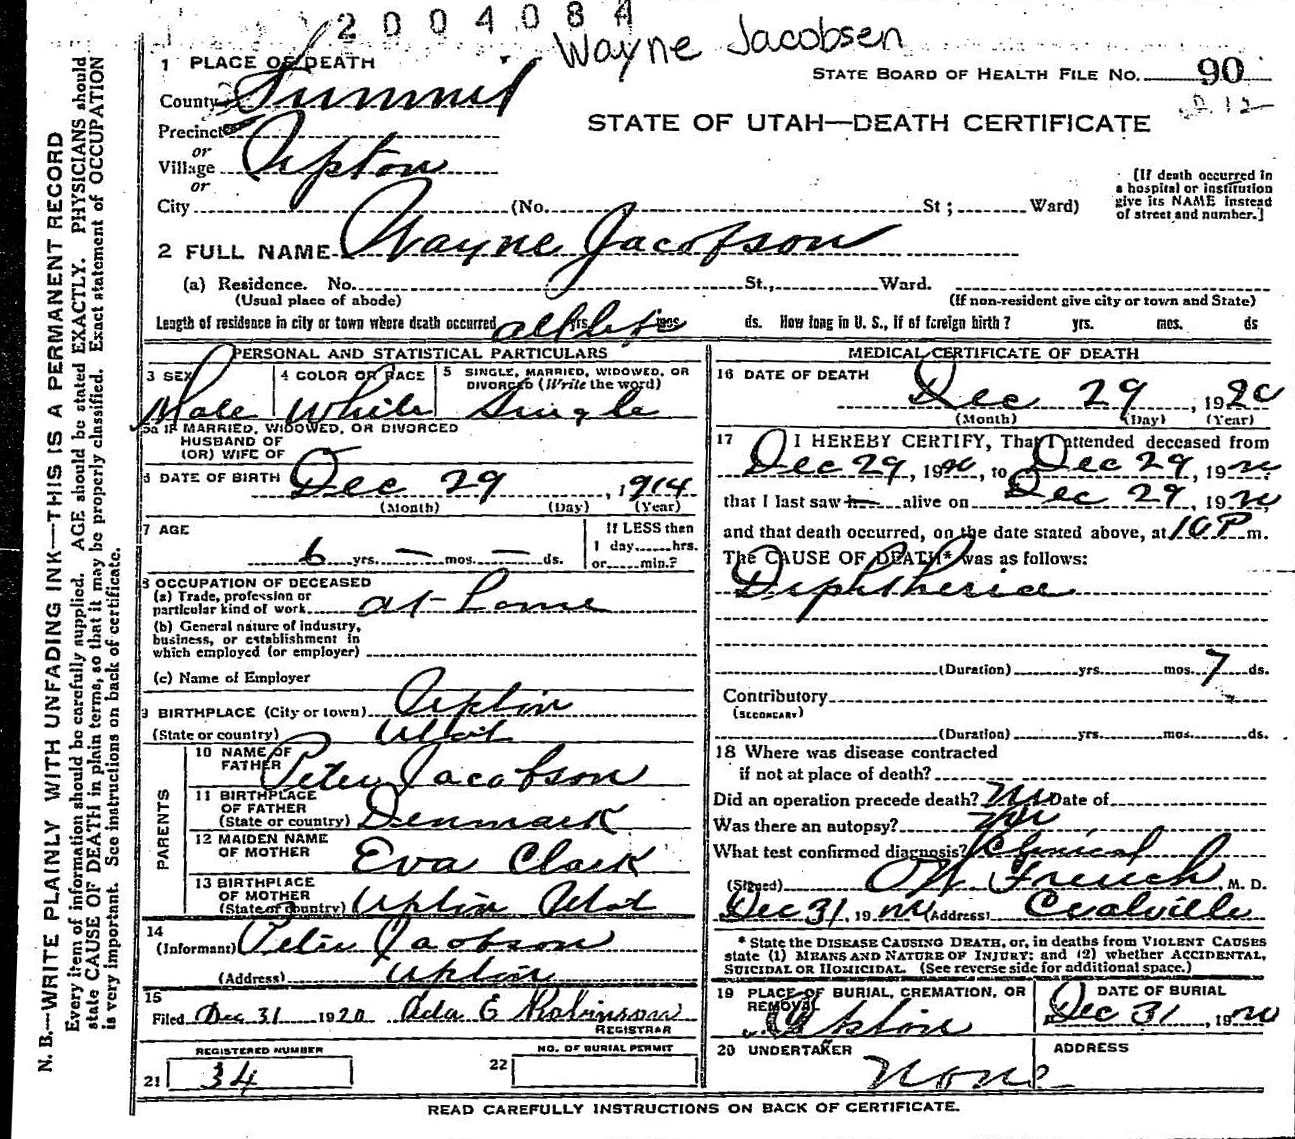 2004084
Wayne Jacobsen
1 PLACE OF DEATH
STATE BOARD OF HEALTH FILE No. 90
County Summit
STATE OF UTAH—DEATH CERTIFICATE
Precinct
or
Village Upton
or
City (No. St; Ward)
[If death occurred in
a hospital or institution
give its NAME instead
of street and number.]
2 FULL NAME Wayne Jacobson
(a) Residence. No. St., Ward.
(Usual place of abode) (If non-resident give city or town and State)
Length of residence in city or town where death occurred all life yrs. mos. ds. How long in U. S., if of foreign birth? yrs. mos. ds
PERSONAL AND STATISTICAL PARTICULARS
3 SEX 4 COLOR OR RACE 5 SINGLE, MARRIED, WIDOWED, OR
DIVORCED (Write the word)
Male White Single
5a IF MARRIED, WIDOWED, OR DIVORCED
HUSBAND OF
(OR) WIFE OF
6 DATE OF BIRTH Dec 29, 1914
(Month) (Day) (Year)
7 AGE If LESS then
1 day......hrs.
6 yrs. — mos. — ds. or......min.?
8 OCCUPATION OF DECEASED
(a) Trade, profession or
particular kind of work at-home
(b) General nature of industry,
business, or establishment in
which employed (or employer)
(c) Name of Employer
9 BIRTHPLACE (City or town) Upton
(State or country) Utah
PARENTS
10 NAME OF
FATHER Peter Jacobson
11 BIRTHPLACE
OF FATHER
(State or country) Denmark
12 MAIDEN NAME
OF MOTHER Eva Clark
13 BIRTHPLACE
OF MOTHER
(State or country) Upton Utah
14
(Informant) Peter Jacobson
(Address) Upton
15
Filed Dec 31 1920 Ada E Robinson
REGISTRAR
REGISTERED NUMBER NO. OF BURIAL PERMIT
21 34 22
MEDICAL CERTIFICATE OF DEATH
16 DATE OF DEATH
Dec 29, 1920
(Month) (Day) (Year)
17 I HEREBY CERTIFY, That I attended deceased from
Dec 29, 1920, to Dec 29, 1920
that I last saw h alive on Dec 29, 1920
and that death occurred, on the date stated above, at 10 P m.
The CAUSE OF DEATH* was as follows:
Diphtheria
(Duration) yrs. mos. 7 ds.
Contributory
(SECONDARY)
(Duration) yrs. mos. ds.
18 Where was disease contracted
if not at place of death?
Did an operation precede death? no Date of
Was there an autopsy? no
What test confirmed diagnosis? Clinical
(Signed) French, M. D.
Dec 31, 1920 (Address) Coalville
* State the DISEASE CAUSING DEATH, or, in deaths from VIOLENT CAUSES
state (1) MEANS AND NATURE OF INJURY; and (2) whether ACCIDENTAL,
SUICIDAL OR HOMICIDAL. (See reverse side for additional space.)
19 PLACE OF BURIAL, CREMATION, OR
REMOVAL
Upton
DATE OF BURIAL
Dec 31, 1920
20 UNDERTAKER ADDRESS
None
READ CAREFULLY INSTRUCTIONS ON BACK OF CERTIFICATE.
N. B.—WRITE PLAINLY WITH UNFADING INK—THIS IS A PERMANENT RECORD
Every item of information should be carefully supplied. AGE should be stated EXACTLY. PHYSICIANS should
state CAUSE OF DEATH in plain terms, so that it may be properly classified. Exact statement of OCCUPATION
is very important. See instructions on back of certificate.